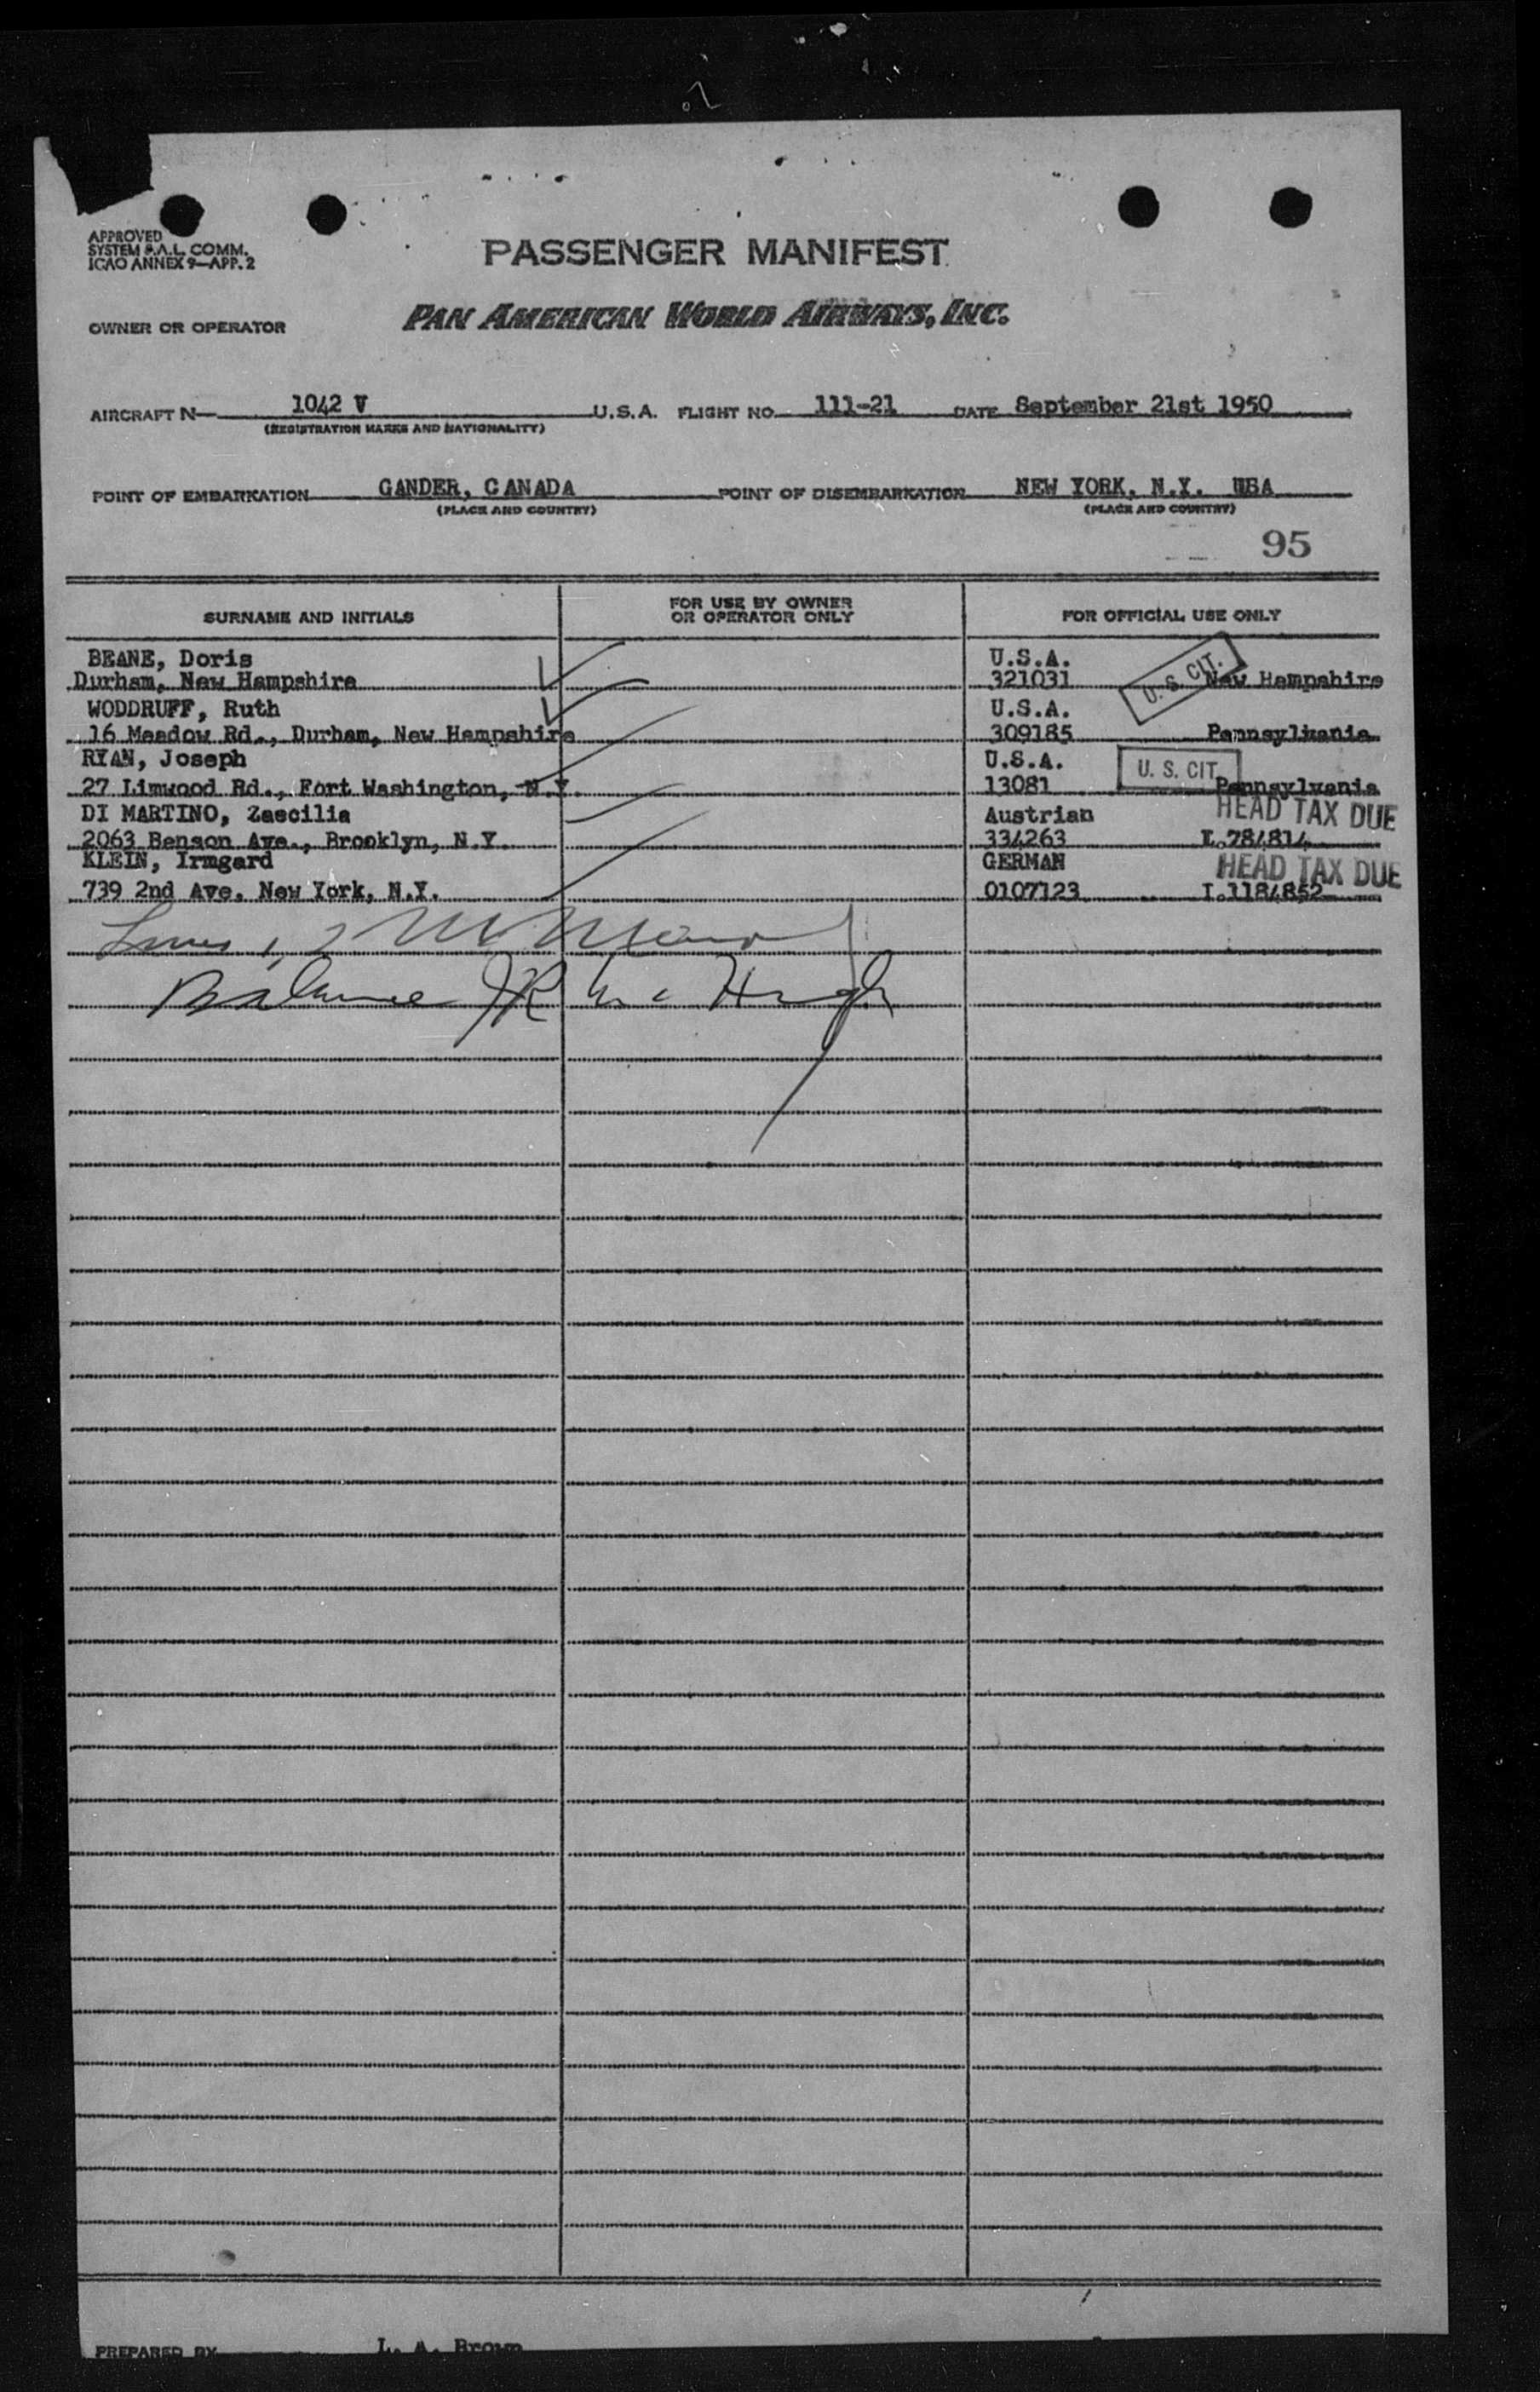 APPROVED
SYSTEM P.A.L. COMM.
ICAO ANNEX 9—APP. 2
PASSENGER MANIFEST
OWNER OR OPERATOR PAN AMERICAN WORLD AIRWAYS, INC.
AIRCRAFT N— 1042 V U.S.A. FLIGHT NO. 111-21 DATE September 21st 1950
(REGISTRATION MARKS AND NATIONALITY)
POINT OF EMBARKATION GANDER, CANADA POINT OF DISEMBARKATION NEW YORK, N.Y. USA
(PLACE AND COUNTRY) (PLACE AND COUNTRY)
95
SURNAME AND INITIALS FOR USE BY OWNER OR OPERATOR ONLY FOR OFFICIAL USE ONLY
BEANE, Doris U.S.A. U. S. CIT.
Durham, New Hampshire 321031 New Hampshire
WODDRUFF, Ruth U.S.A.
16 Meadow Rd., Durham, New Hampshire 309185 Pennsylvania
RYAN, Joseph U.S.A. U. S. CIT.
27 Limwood Rd., Fort Washington, N.Y. 13081 Pennsylvania
DI MARTINO, Zaecilia Austrian HEAD TAX DUE
2063 Benson Ave., Brooklyn, N.Y. 334263 I.784814
KLEIN, Irmgard GERMAN HEAD TAX DUE
739 2nd Ave. New York, N.Y. 0107123 I.1184852
Balance JR Mc Hugh
PREPARED BY L. A. Brown